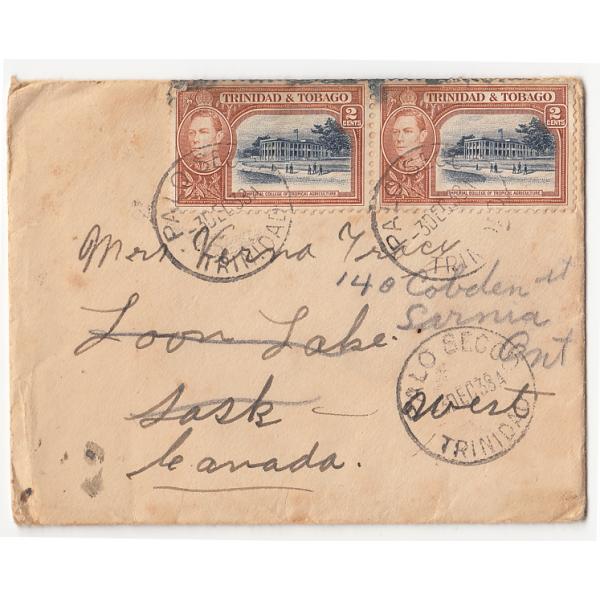 TRINIDAD & TOBAGO
2
CENTS
IMPERIAL COLLEGE OF TROPICAL AGRICULTURE
TRINIDAD & TOBAGO
2
CENTS
IMPERIAL COLLEGE OF TROPICAL AGRICULTURE
PALO SECO
3DEC38
TRINIDAD
PALO SECO
3DEC38
TRINIDAD
Mrs Verna Tracy
140 Cobden st
Sarnia
Ont
Loon Lake.
Sask - West
Canada.
PALO SECO
DEC38
TRINIDAD